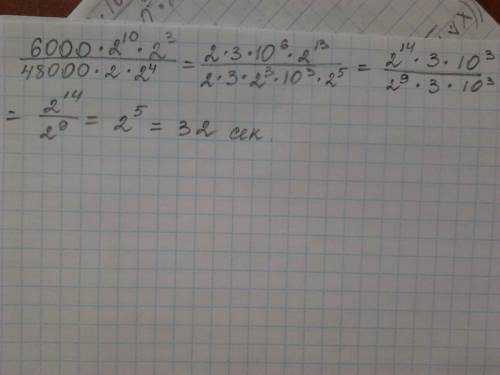 6000·2^10·2^3 / 48000·2·2^4 = 2·3·10^6·2^13 / 2·3·2^3·10^3·2^5 = 2^14·3·10^3 / 2^9·3·10^3
= 2^14 / 2^9 = 2^5 = 32 сек.